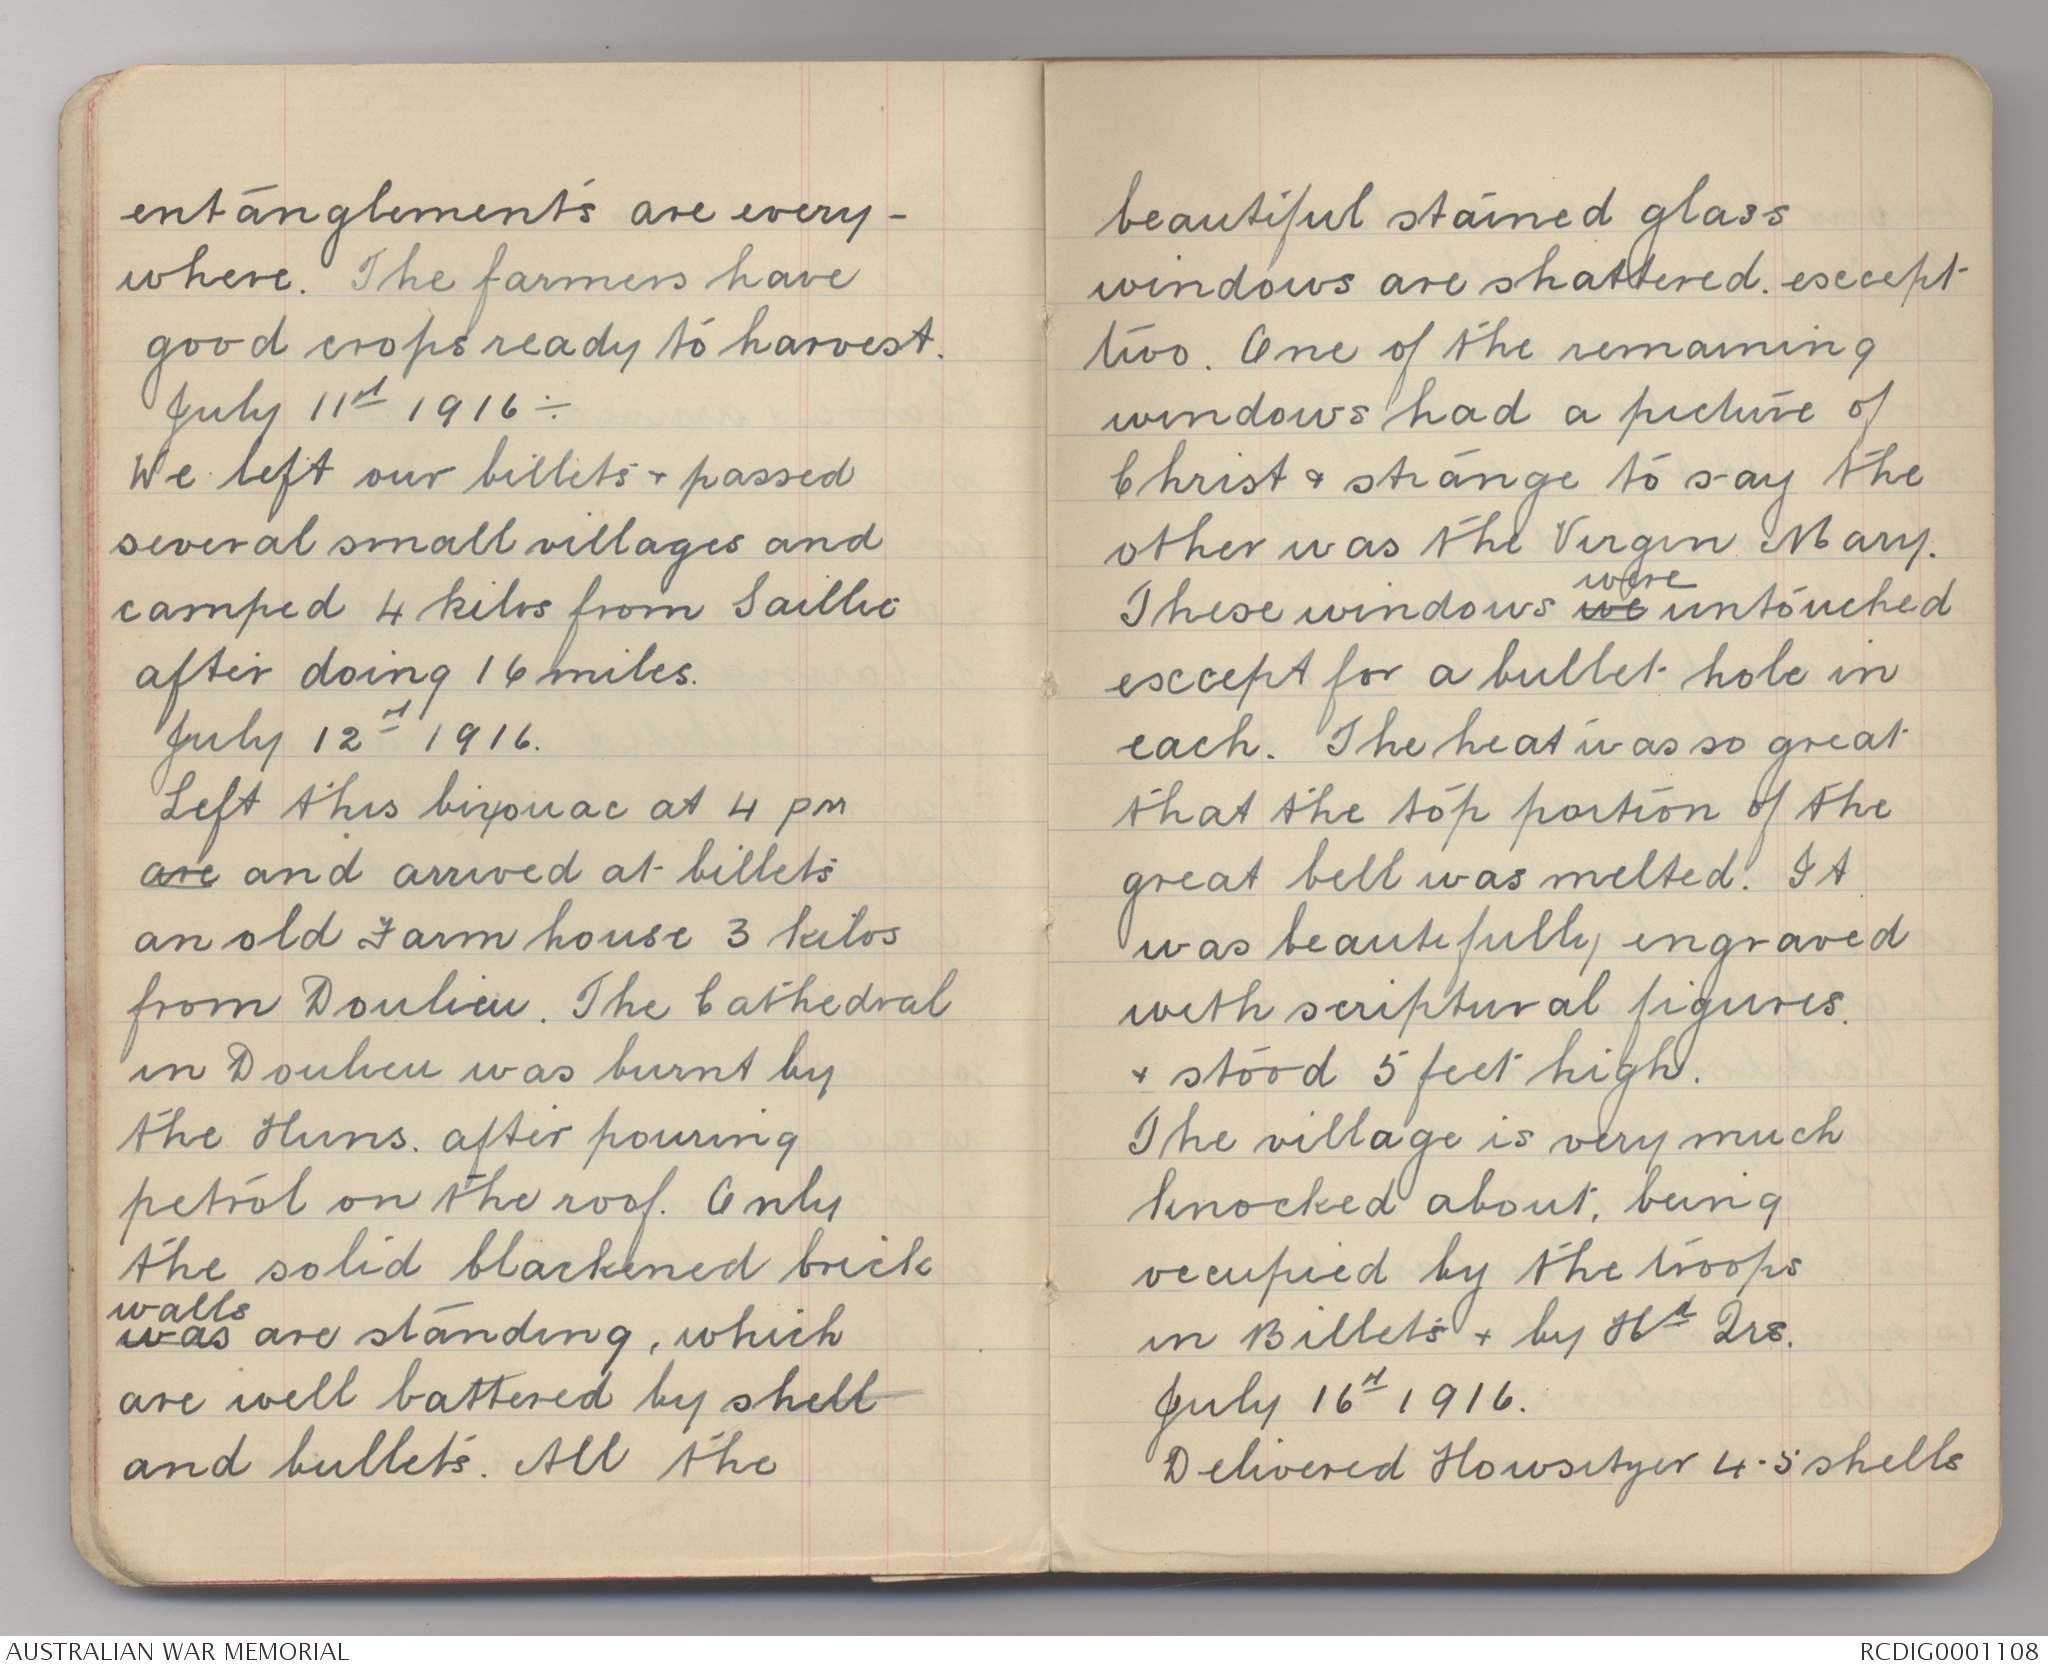 entanglements are every-
where. The farmers have
good crops ready to harvest.
July 11st 1916 ÷
We left our billets + passed
several small villages and
camped 4 kilos from Saillie
after doing 16 miles.
July 12nd 1916.
Left this bivouac at 4 pm
~~are~~ and arrived at billets
an old Farm house 3 kilos
from Doulieu. The Cathedral
in Doulieu was burnt by
the Huns. after pouring
petrol on the roof. Only
the solid blackened brick
walls
~~was~~ are standing, which
are well battered by shell
and bullets. All the
beautiful stained glass
windows are shattered. except
two. One of the remaining
windows had a picture of
Christ + strange to say the
other was the Virgin Mary.
were
These windows ~~we~~ untouched
except for a bullet hole in
each. The heat was so great
that the top portion of the
great bell was melted. It
was beautifully engraved
with scriptural figures.
+ stood 5 feet high.
The village is very much
knocked about, being
occupied by the troops
in Billets + by Hd Qrs.
July 16st 1916.
Delivered Howsitzer 4.5 shells
AUSTRALIAN WAR MEMORIAL
RCDIG0001108